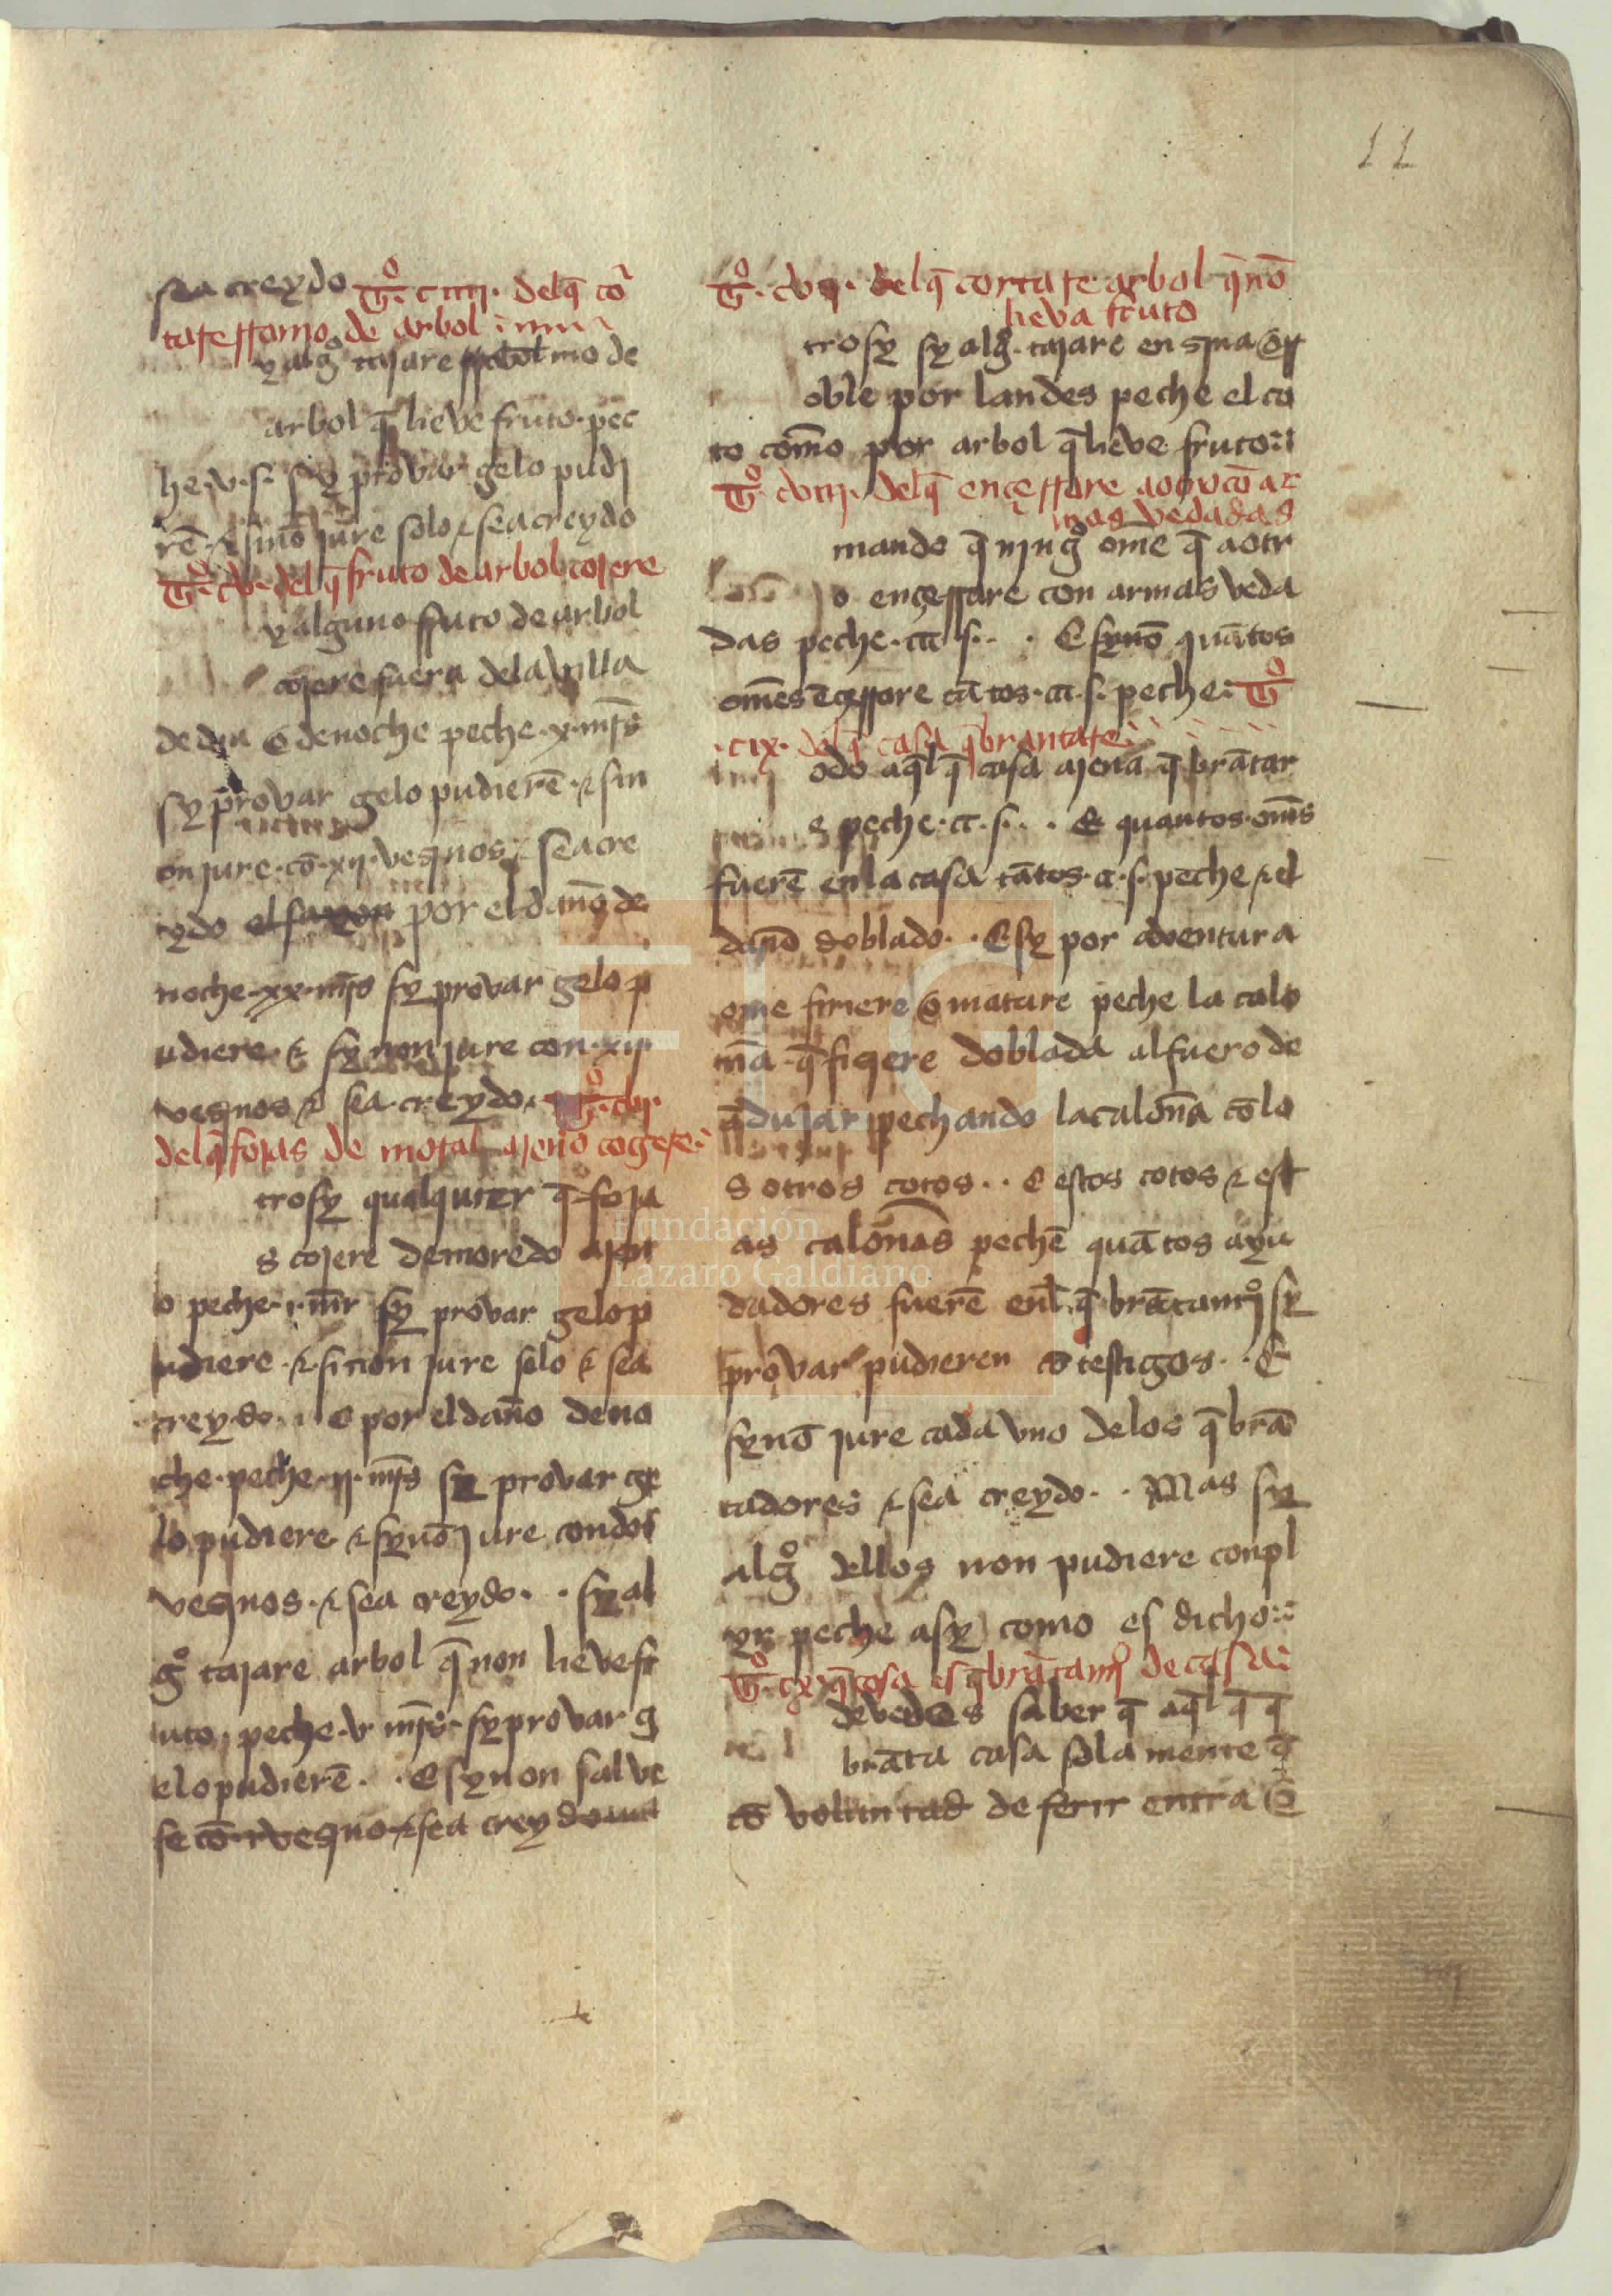 11
sea creydo Tº. ciiij. del q̃ co
tare rramo de arbol
y algº tajare rramo de
arbol q̃ lieve fruto. pec
he. v. s. sy provar gelo pudi
rẽ ⁊ sinõ jure solo ⁊ sea creydo
Tº. cv. del q̃ fruto de arbol cojere
y alguno fruto de arbol
cojere fuera dela villa
de dia o de noche peche .x. mr̃s
sy provar gelo pudierẽ. ⁊ sin
on jure. cõ. xij. vezinos ⁊ sea cre
ydo por el daño de
noche. xx. mr̃s sy provar gelo p
udiere. ⁊ sy non jure con. xij
vezinos ⁊ sea creydo. Tº. cvj.
del q̃ fojas de moral ajeno cogere
trosy qualquier q̃ foja
s cojere de moredo ajen
o peche .j. mr̃ sy provar gelo p
udiere. ⁊ si non jure solo ⁊ sea
creydo. . E por el daño de no
che. peche. ij. mr̃s sy provar ge
lo pudiere ⁊ synõ jure con dos
vezinos. ⁊ sea creydo. . sy al
gº tajare arbol q̃ non lieve fr
uto. peche. v mr̃s. sy provar g
elo pudierẽ. . E sy non salve
se cõ. vezino ⁊ sea creydo
Tº. cvij. del q̃ cortare arbol q̃ nõ
lieva fruto
trosy sy algº. tajare enzina o rr
oble por landes peche el co
to com̃o por arbol q̃ lieve fruto
Tº. cviij. del q̃ ençerrare a otro cõ ar
mas vedadas
mando q̃ njngº ome q̃ a otr
o ençerrare con armas veda
das peche. ccc s. . E synõ quãtos
om̃es ẽçerrare tãtos. ccc. s. peche Tº
. cix. del q̃ casa q̃brantare
odo aq̃l q̃ casa ajena q̃brãtar
e peche. cc. s. . E quantos om̃s
fuerẽ en la casa tãtos. cc. s. peche ⁊ el
daño doblado. . E sy por aventura
ome firiere o matare peche la calo
ñia q̃ fiziere doblada al fuero de
ãdujar pechando la caloña cõ lo
s otros cotos. . E estos cotos ⁊ est
as caloñas pechẽ quãtos ayu
dadores fuerẽ enl q̃brãtamjº sy
provar pudieren cõ testigos. . E
synõ jure cada vno de los q̃brã
tadores ⁊ sea creydo. . Mas sy
algº dellos non pudiere conpl
yr peche asy como es dicho
Tº. cx. q̃ cosa es q̃brãtamjº de casa
devedes saber q̃ aq̃l q̃ q̃
brãta casa sola mente q̃
cõ voluntad de ferir entra E